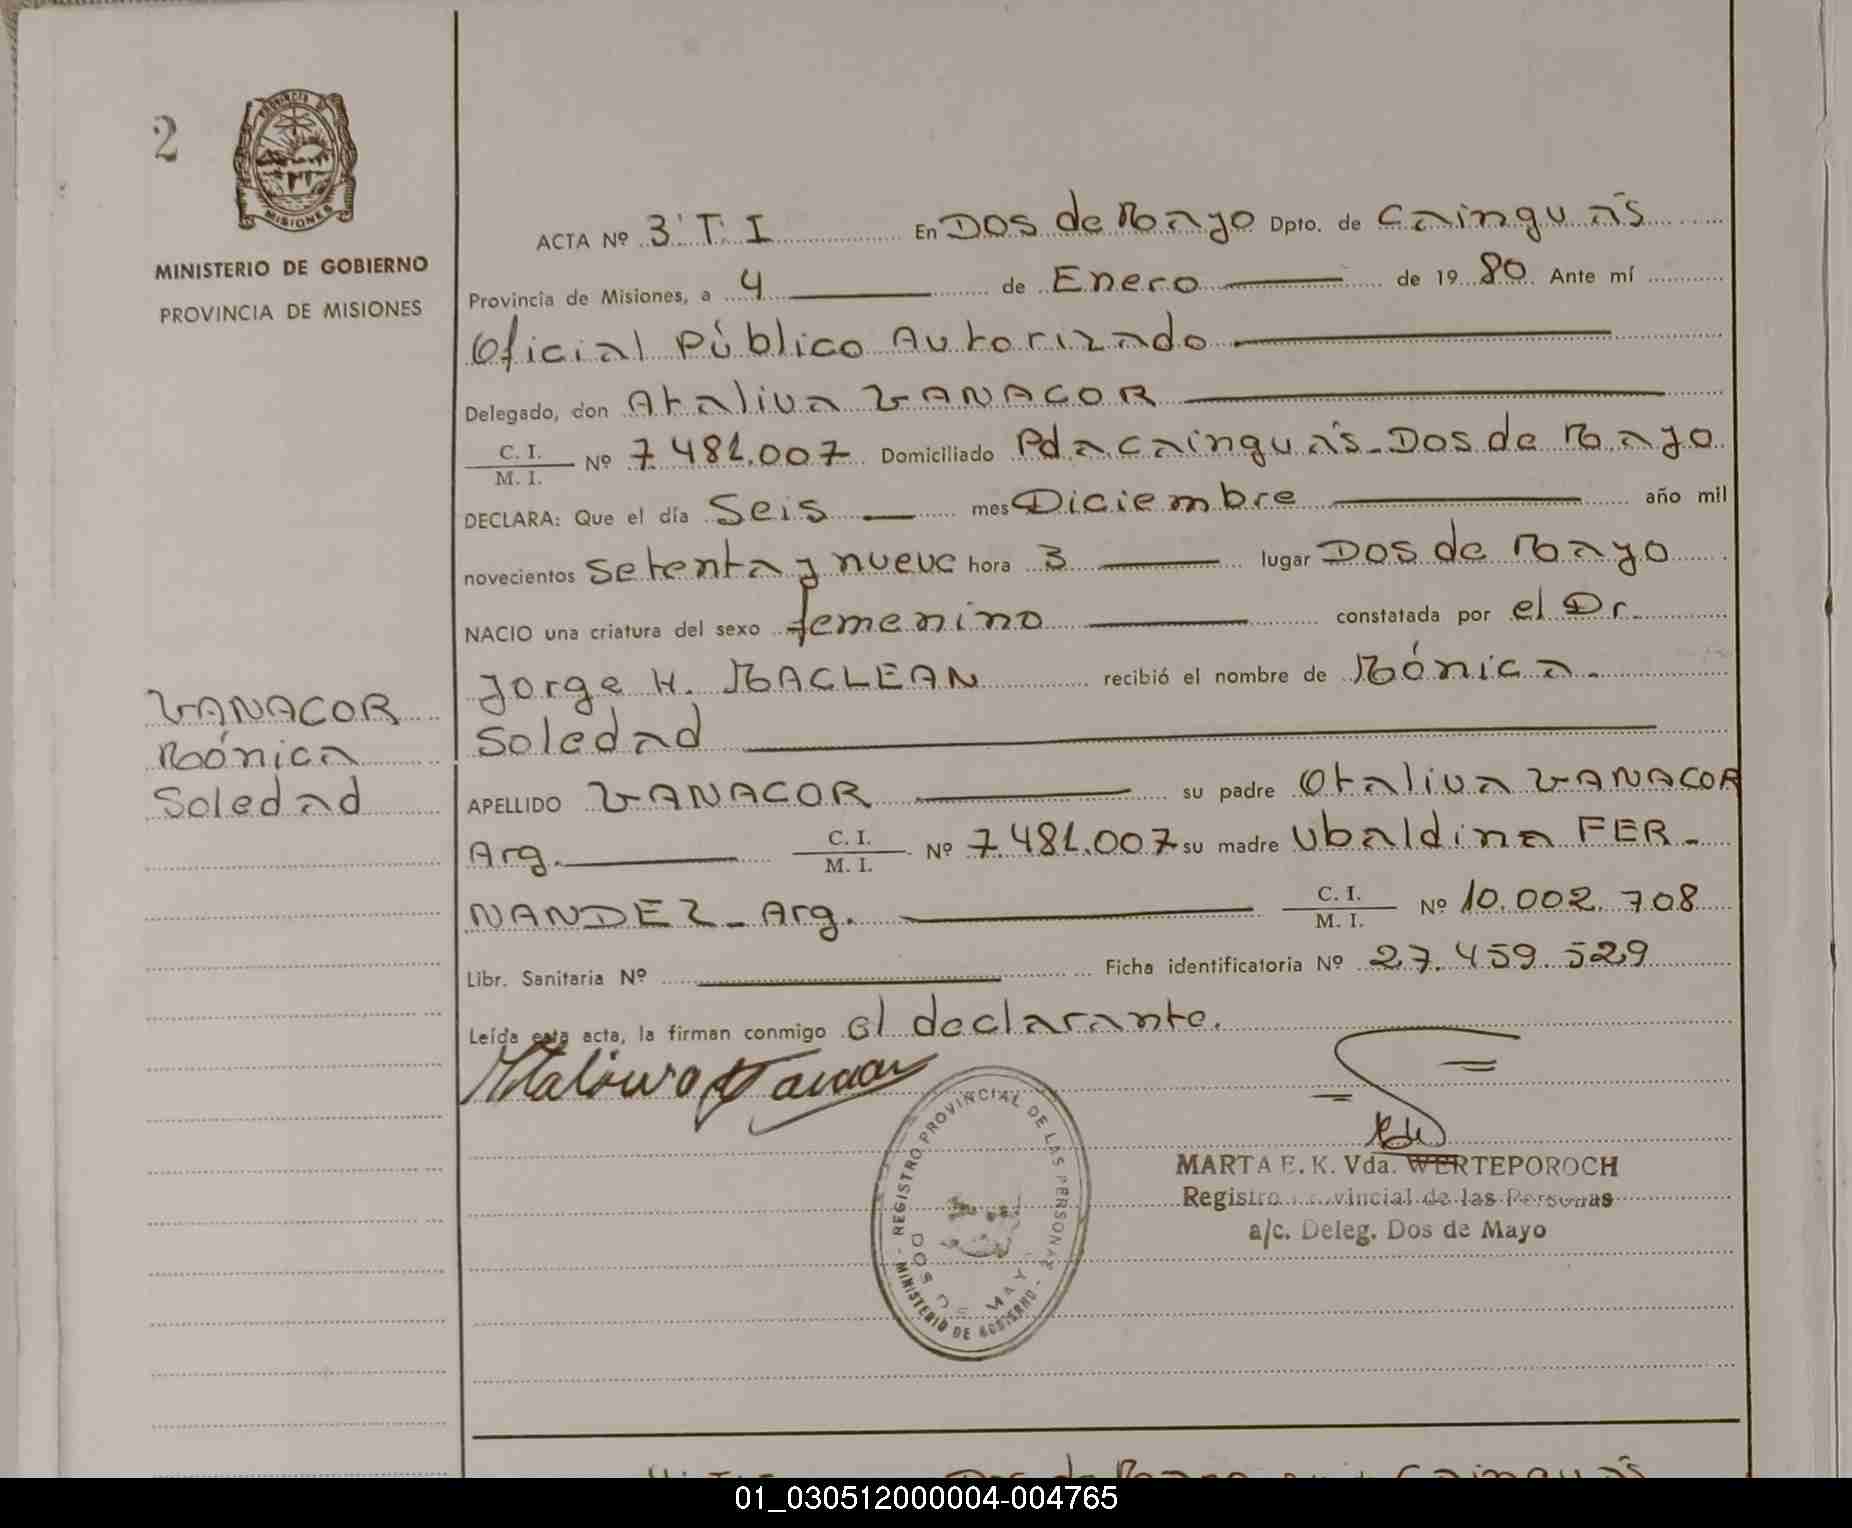 2
PROVINCIA DE
MISIONES
MINISTERIO DE GOBIERNO
PROVINCIA DE MISIONES
ACTA Nº 3 T. I En Dos de Mayo Dpto. de Cainguás
Provincia de Misiones, a 4 de Enero de 1980 Ante mí
Oficial Público Autorizado
Delegado, don Ataliva VANACOR
C. I. / M. I. Nº 7.481.007 Domiciliado Pda Cainguás - Dos de Mayo
DECLARA: Que el día Seis mes Diciembre año mil
novecientos setenta y nueve hora 3 lugar Dos de Mayo
NACIO una criatura del sexo femenino constatada por el Dr.
Jorge H. MACLEAN recibió el nombre de Mónica
Soledad
VANACOR
Mónica
Soledad
APELLIDO VANACOR su padre Otaliva VANACOR
Arg. C. I. / M. I. Nº 7.481.007 su madre Ubaldina FER-
NANDEZ - Arg. C. I. / M. I. Nº 10.002.708
Libr. Sanitaria Nº Ficha identificatoria Nº 27.459.529
Leída esta acta, la firman conmigo el declarante.
REGISTRO PROVINCIAL DE LAS PERSONAS
DOS DE MAYO
MINISTERIO DE GOBIERNO
MARTA E. K. Vda. WERTEPOROCH
Registro Provincial de las Personas
a/c. Deleg. Dos de Mayo
01_030512000004-004765